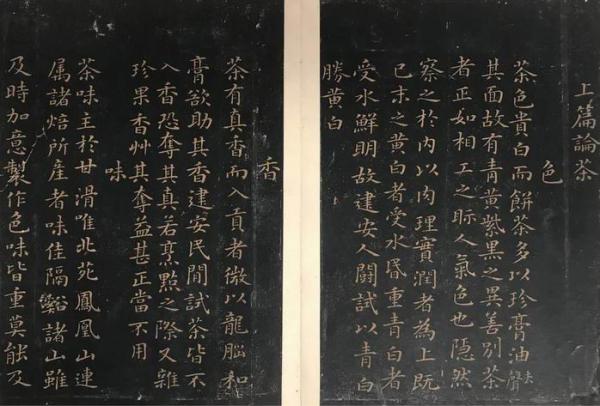 上篇論茶
色
茶色貴白而餅茶多以珍膏油去聲
其面故有青黃紫黑之異善別茶
者正如相工之眎人氣色也隱然
察之於內以肉理實潤者為上既
已末之黃白者受水昬重青白者
受水鮮明故建安人闘試以青白
勝黃白
香
茶有真香而入貢者微以龍腦和
膏欲助其香建安民間試茶皆不
入香恐奪其真若烹點之際又雜
珍果香艸其奪益甚正當不用
味
茶味主於甘滑唯北苑鳳凰山連
屬諸焙所產者味佳隔谿諸山雖
及時加意製作色味皆重莫能及